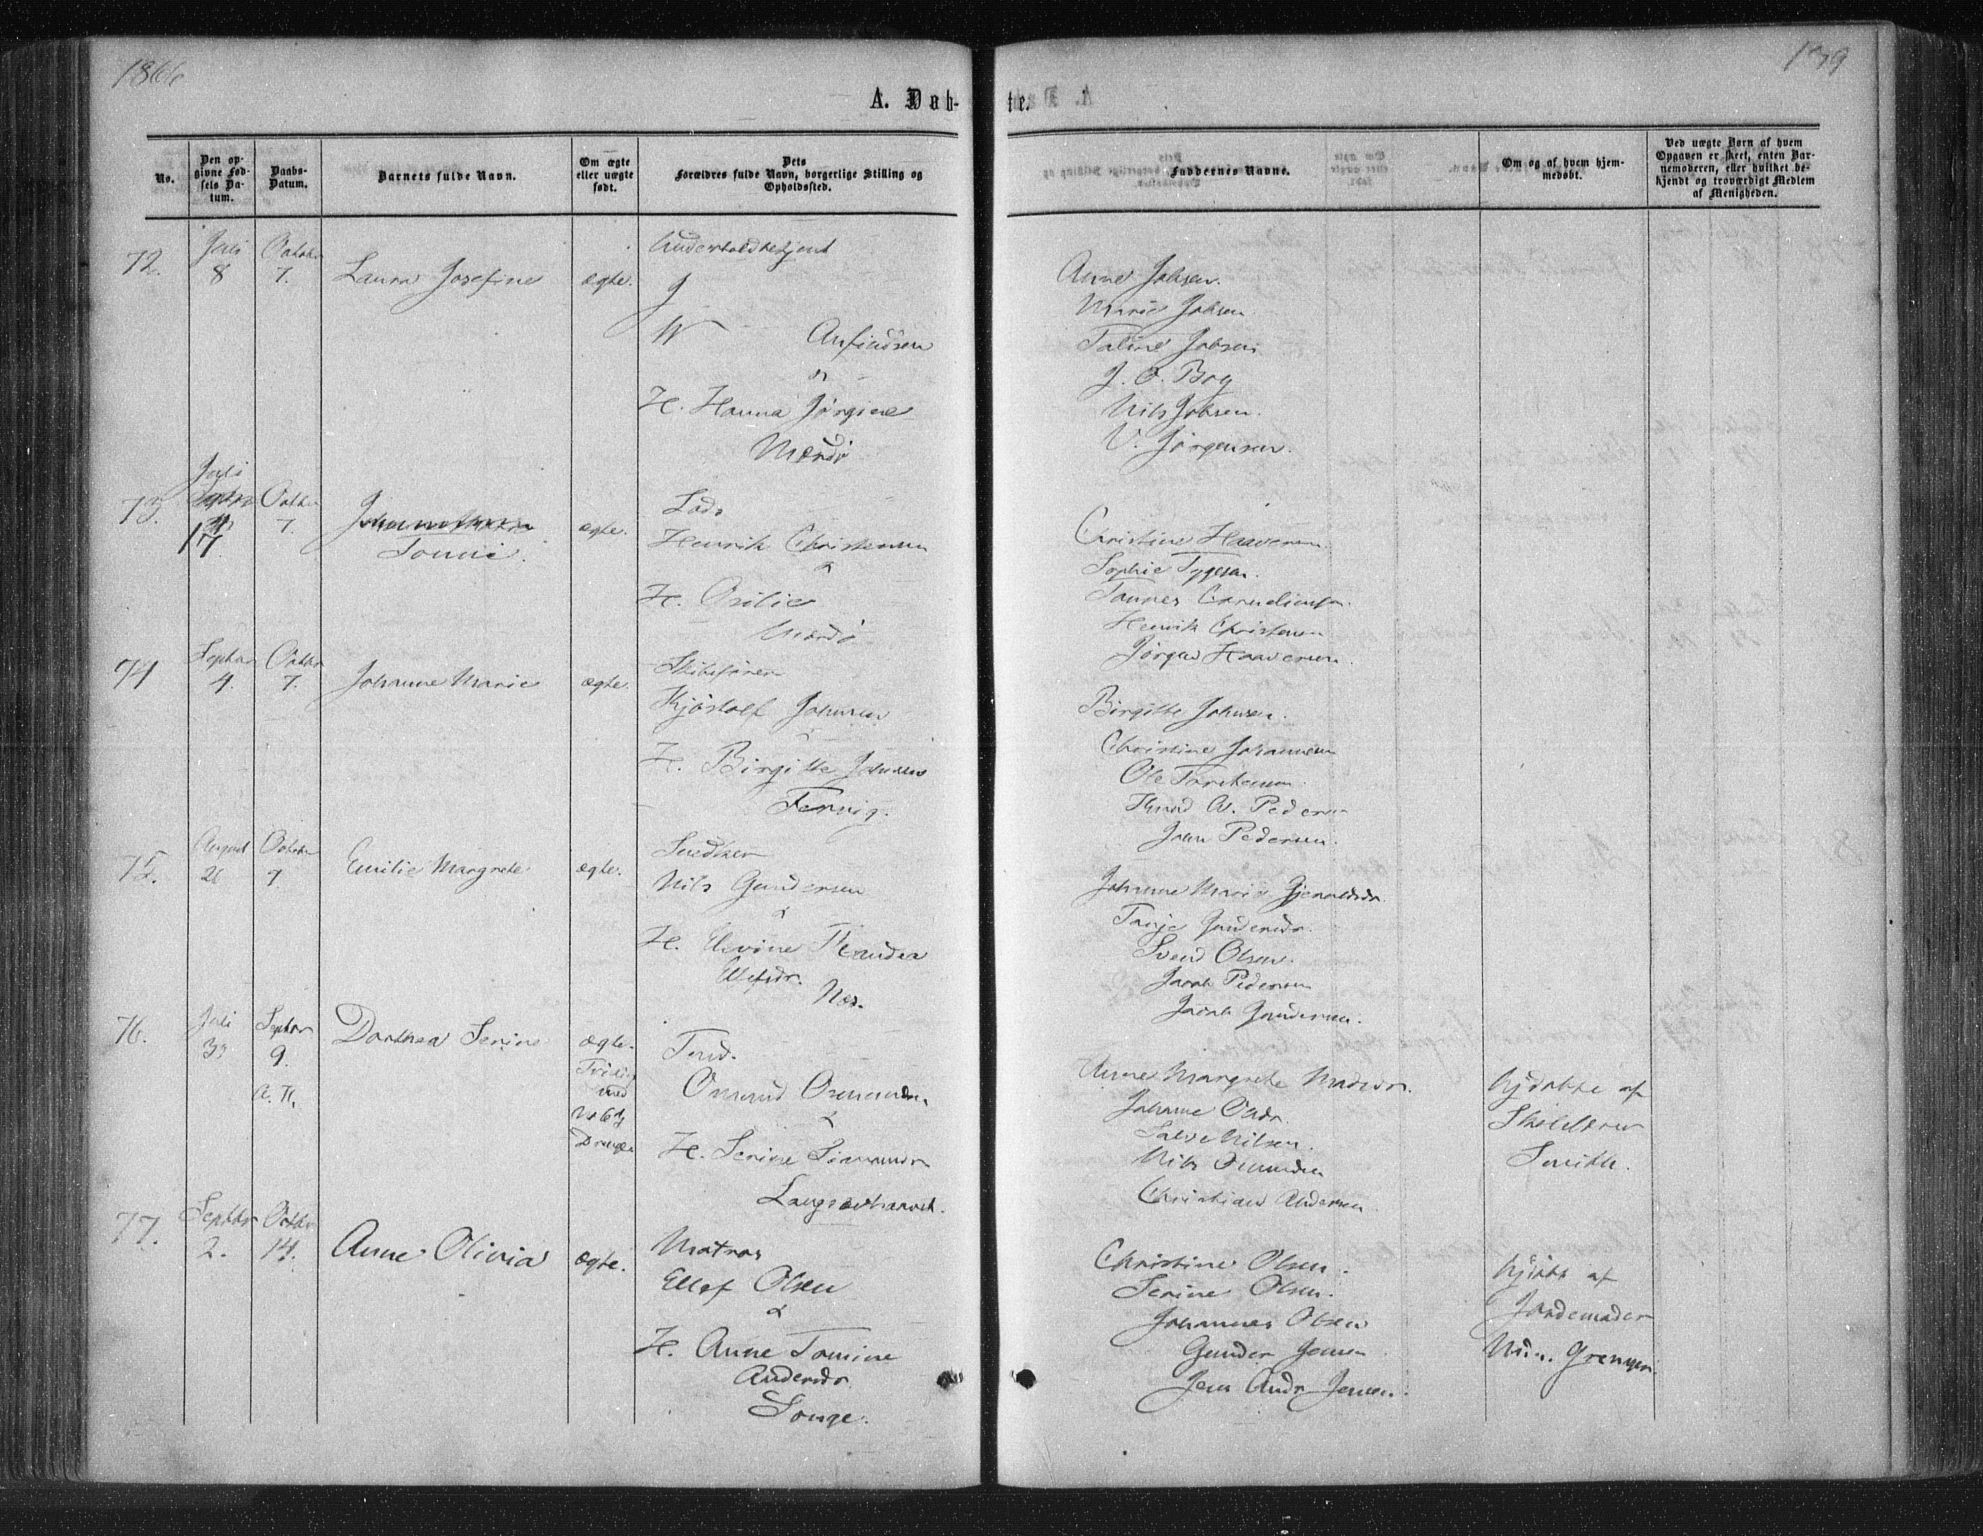 1866
139
A. Dåb-
te.
No.
Den op-
givne Fød-
sels Da-
tum.
Daabs-
Datum.
Barnets fulde Navn.
Om ægte
eller uægte
født.
Dets
Forældres fulde Navn, borgerlige Stilling og
Opholdssted.
Faddernes Navne.
Om og af hvem hjem-
medøbt.
Ved uægte Børn af hvem
Opgaven er skeet, enten Bar-
nemoderen, eller hvilket be-
kjendt og troværdigt Medlem
af Menigheden.
72.
Juli
8
October
7.
Laura Josefine
ægte.
J
W
Anfindsen
H. Hanna Jørgine
Mærdø
Anne Jobsen.
Marie Jobsen
Taline Jobsen
J. O. Boy
Nils Jobsen.
V. Jørgensen.
73.
Juli
17
October
7.
Tomine.
ægte.
Lods
Henrik Christensen
&
H. Osilie
Mærdø
Christine Haaversen.
Sophie Tygesen.
Tønnes Corneliusen.
Henrik Christensen
Jørgen Haaversen.
74
Septbr
4.
Octbr
7.
Johanne Marie
ægte.
Skibsfører
Kjøstolf Johnsen
H. Birgitte Johnsen
Fervig.
Birgitte Johnsen.
Christine Johannesen
Ole Terkelsen.
Knud A. Pedersen
John Pedersen.
75.
August
26
October
7.
Emilie Margrete
ægte.
Snedker
Nils Gundersen
&
H. Elevine Thendea
Ellefsdr.
Nes.
Johanne Marie Gjeruldsdr.
Tarje Gundersdr.
Svend Olsen.
Jacob Pedersen
Jacob Gundersen.
76.
Juli
30
Septbr
9.
n. K.
Dorthea Serine
ægte.
Tvilling
med
No 61
Drenge
Tmd.
Omund Osmundsen
&
H. Serine Simonsdr
Langsævhavet.
Anne Margrete Madsdr.
Johanne Olsdr.
Salve Nilsen.
Nils Omundsen
Christian Andersen
hjdøbt af
Skolelærer
Smith.
77.
Septbr
2.
Octbr
14.
Anne Olivia
ægte.
Matros
Ellef Olsen
&
H. Anne Tomine
Andersdr
Songe.
Christine Olsen.
Serine Olsen.
Johannes Olsen
Gunder Jensen
Jens Andr Jensen.
hjdøbt af
Jordemoder